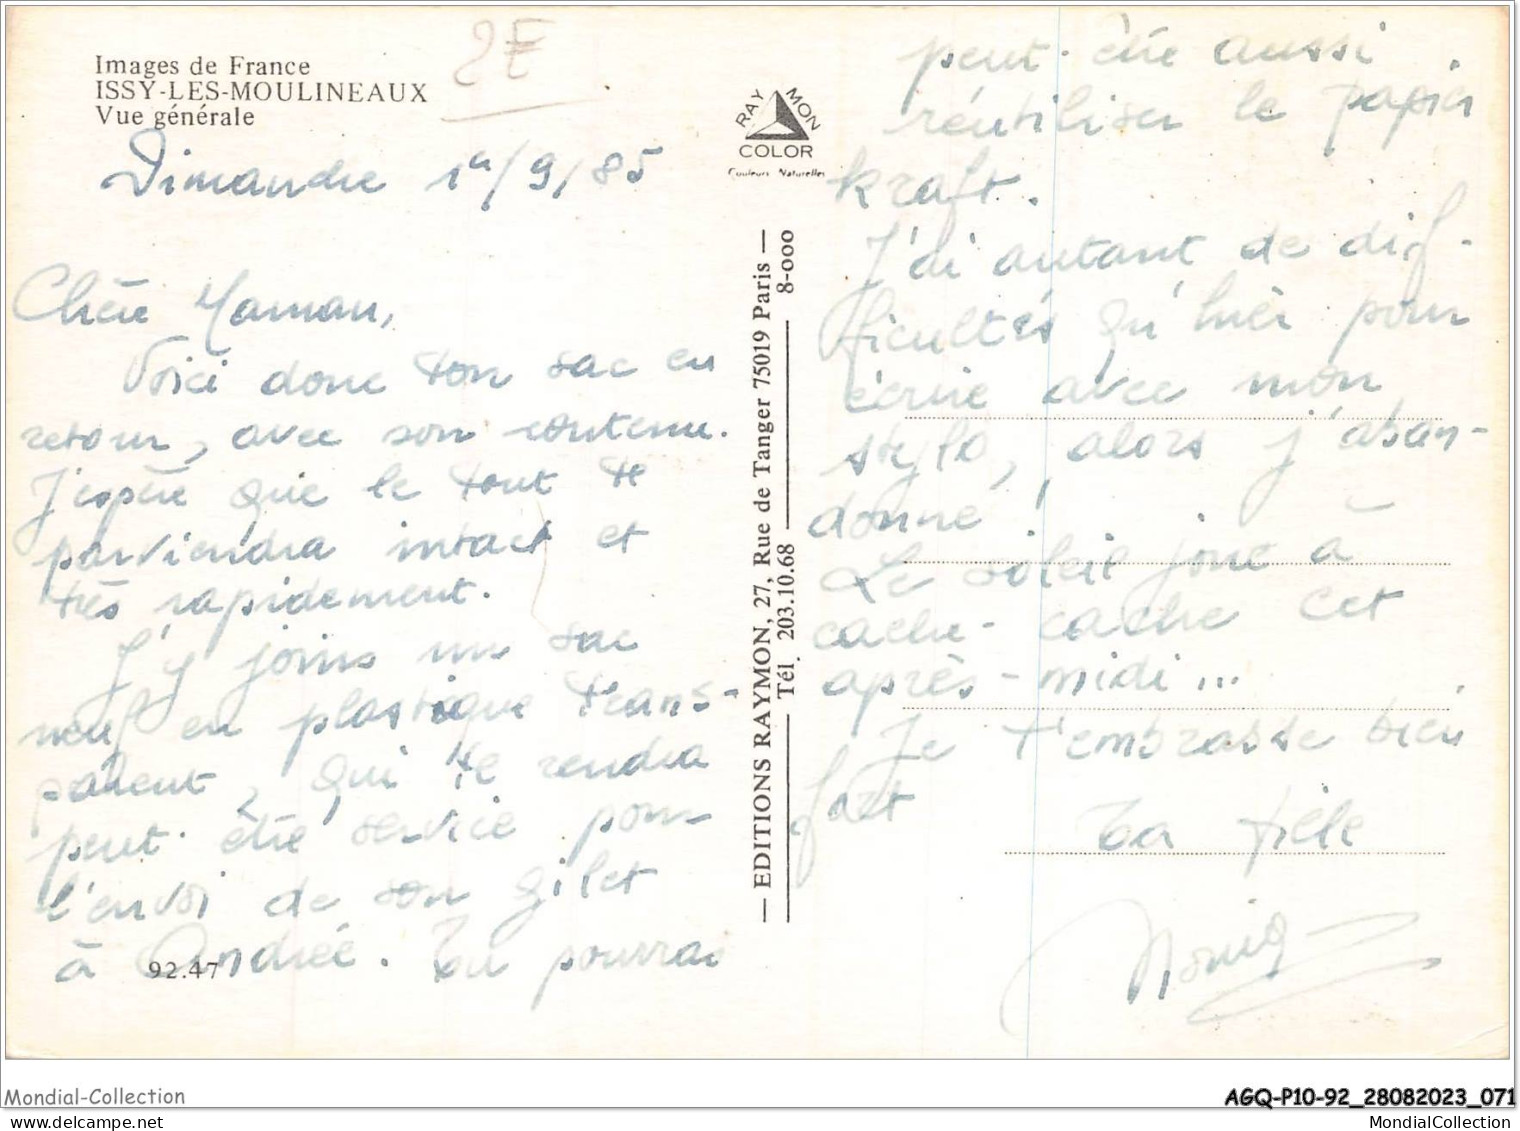 Images de France
ISSY-LES-MOULINEAUX
Vue générale
2F
Dimanche 1er/9/85
Chère Maman,
Voici donc ton sac en
retour, avec son contenu.
J'espère que le tout te
parviendra intact et
très rapidement.
J'y joins un sac
neuf en plastique trans-
parent, qui te rendra
peut-être service pour
l'envoi de son gilet
à Andrée. Tu pourras
92.47
RAYMON
COLOR
Couleurs Naturelles
— EDITIONS RAYMON, 27, Rue de Tanger 75019 Paris —
Tél. 203.10.68
8-000
peut-être aussi
réutiliser le papier
kraft.
J'ai autant de dif-
ficultés qu'hier pour
écrire avec mon
stylo, alors j'aban-
donne !
Le soleil joue à
cache-cache cet
après-midi...
Je t'embrasse bien
fort
Ta fille
Mondial-Collection
AGQ-P10-92_28082023_071
Mondial-Collection
MondialCollection